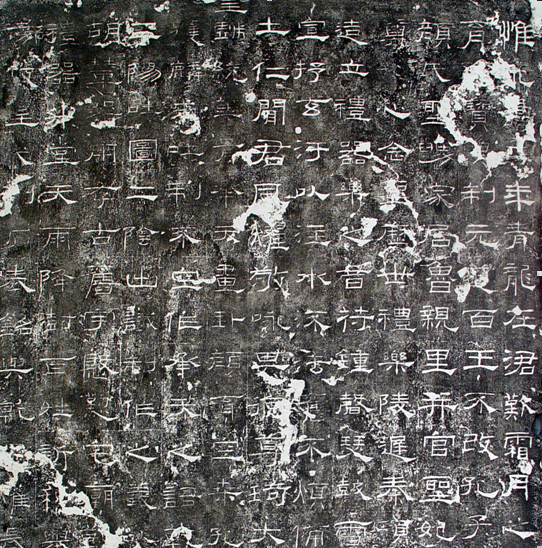 惟永壽二年青龍在涒歎霜月之
育孔寶俱制元道百王不改孔子
顏氏聖舅家居魯親里并官聖妃
尊孔心念聖歷世禮樂陵遲秦項
造立禮器樂之音苻鐘磬瑟鼓雷
宣抒玄汙以注水流法舊不煩備
士仁聞君風燿敬咏其德尊琦大
皇戲統華胥承天畫卦顏育空桑孔
獲麟來吐制不空作承天之語乾
三陽吐圖二陰出讖制作之義
胡輦器用存古舊宇殷勤宅廟
禮器升堂天雨降澍百姓訢和舉
代刊石表銘與乾燿長